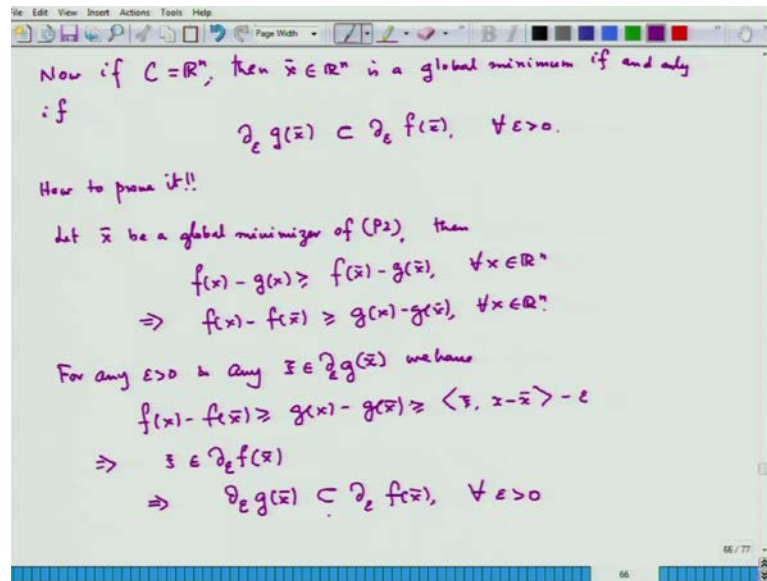 File Edit View Insert Actions Tools Help
Page Width
B I
Now if C = ℝⁿ, then x̄ ∈ ℝⁿ is a global minimum if and only
if
∂_ε g(x̄) ⊂ ∂_ε f(x̄), ∀ ε>0.
How to prove it!!
Let x̄ be a global minimizer of (P2), then
f(x) - g(x) ≥ f(x̄) - g(x̄), ∀ x ∈ ℝⁿ
⇒ f(x) - f(x̄) ≥ g(x) - g(x̄), ∀ x ∈ ℝⁿ.
For any ε>0 & any ξ ∈ ∂_ε g(x̄) we have
f(x) - f(x̄) ≥ g(x) - g(x̄) ≥ ⟨ξ, x - x̄⟩ - ε
⇒ ξ ∈ ∂_ε f(x̄)
⇒ ∂_ε g(x̄) ⊂ ∂_ε f(x̄), ∀ ε>0
66 / 77
66